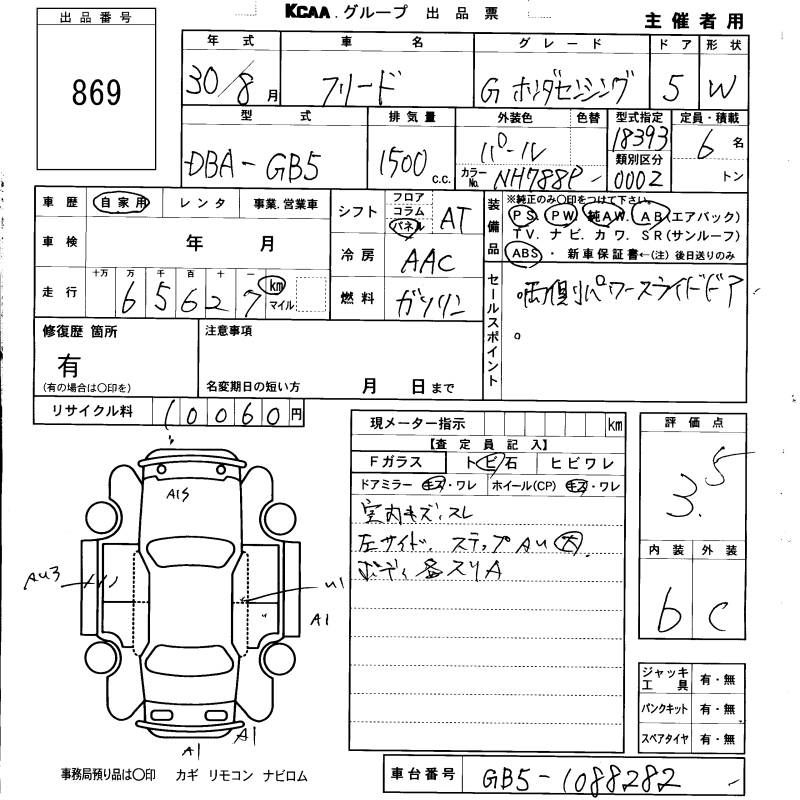 KCAA.グループ 出品票
主催者用
出品番号
869
年式 車名 グレード ドア 形状
30/8月 フリード G ホンダセンシング 5 W
型式 排気量 外装色 色替 型式指定 定員・積載
DBA-GB5 1500 c.c. パール 18393 6名
カラーNo. NH788P- 類別区分 0002 トン
車歴 自家用 レンタ 事業.営業車
車検 年 月
走行 十万 万 千 百 十 一 km マイル
6 5 6 2 7
シフト フロア コラム パネル AT
冷房 AAC
燃料 ガソリン
装備品 ※純正のみ○印をつけて下さい。
PS PW 純AW. AB(エアバック)
TV. ナビ. カワ. SR(サンルーフ)
ABS・新車保証書←(注)後日送りのみ
セールスポイント
両側パワースライドドア
。
修復歴 箇所
有
(有の場合は○印を)
注意事項
名変期日の短い方 月 日まで
リサイクル料 10060円
現メーター指示 km
【査定員記入】
Fガラス トビ石 ヒビワレ
ドアミラー キズ・ワレ ホイール(CP) キズ・ワレ
室内キズ、スレ
左サイド、ステップAU大、
ボディ各スリA
評価点
3.5
内装 外装
b C
A1S
AU3
U1
A1
A1
A1
ジャッキ工具 有・無
パンクキット 有・無
スペアタイヤ 有・無
事務局預り品は○印 カギ リモコン ナビロム
車台番号 GB5-1088282